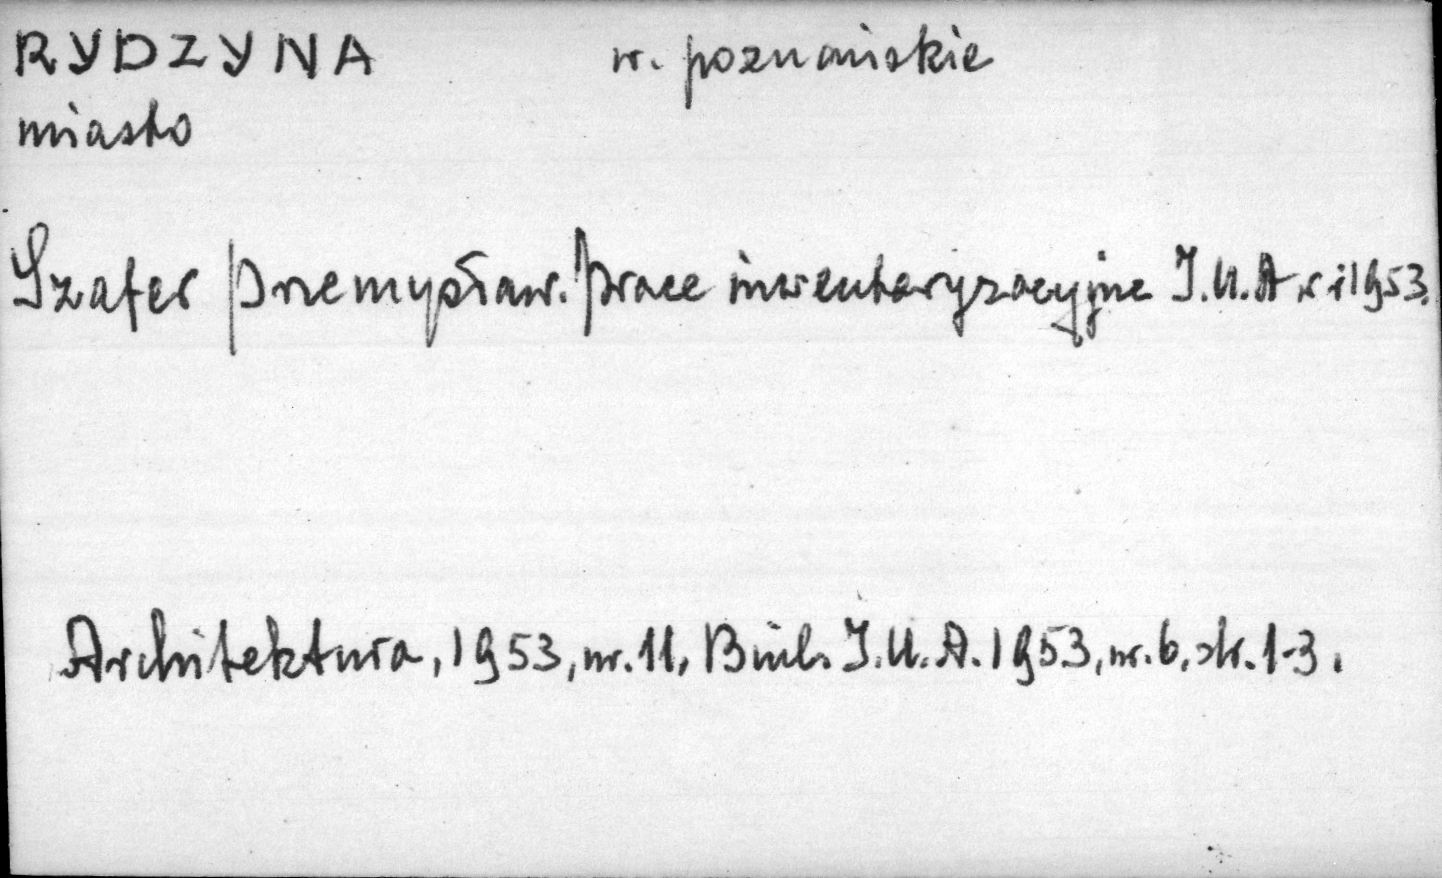 RYDZYNA w. poznańskie
miasto
Szafer Przemysław. Prace inwentaryzacyjne I.U.A w r 1953.
Architektura, 1953, nr. 11, Biul. I.U.A. 1953, nr. 6, str. 1-3.